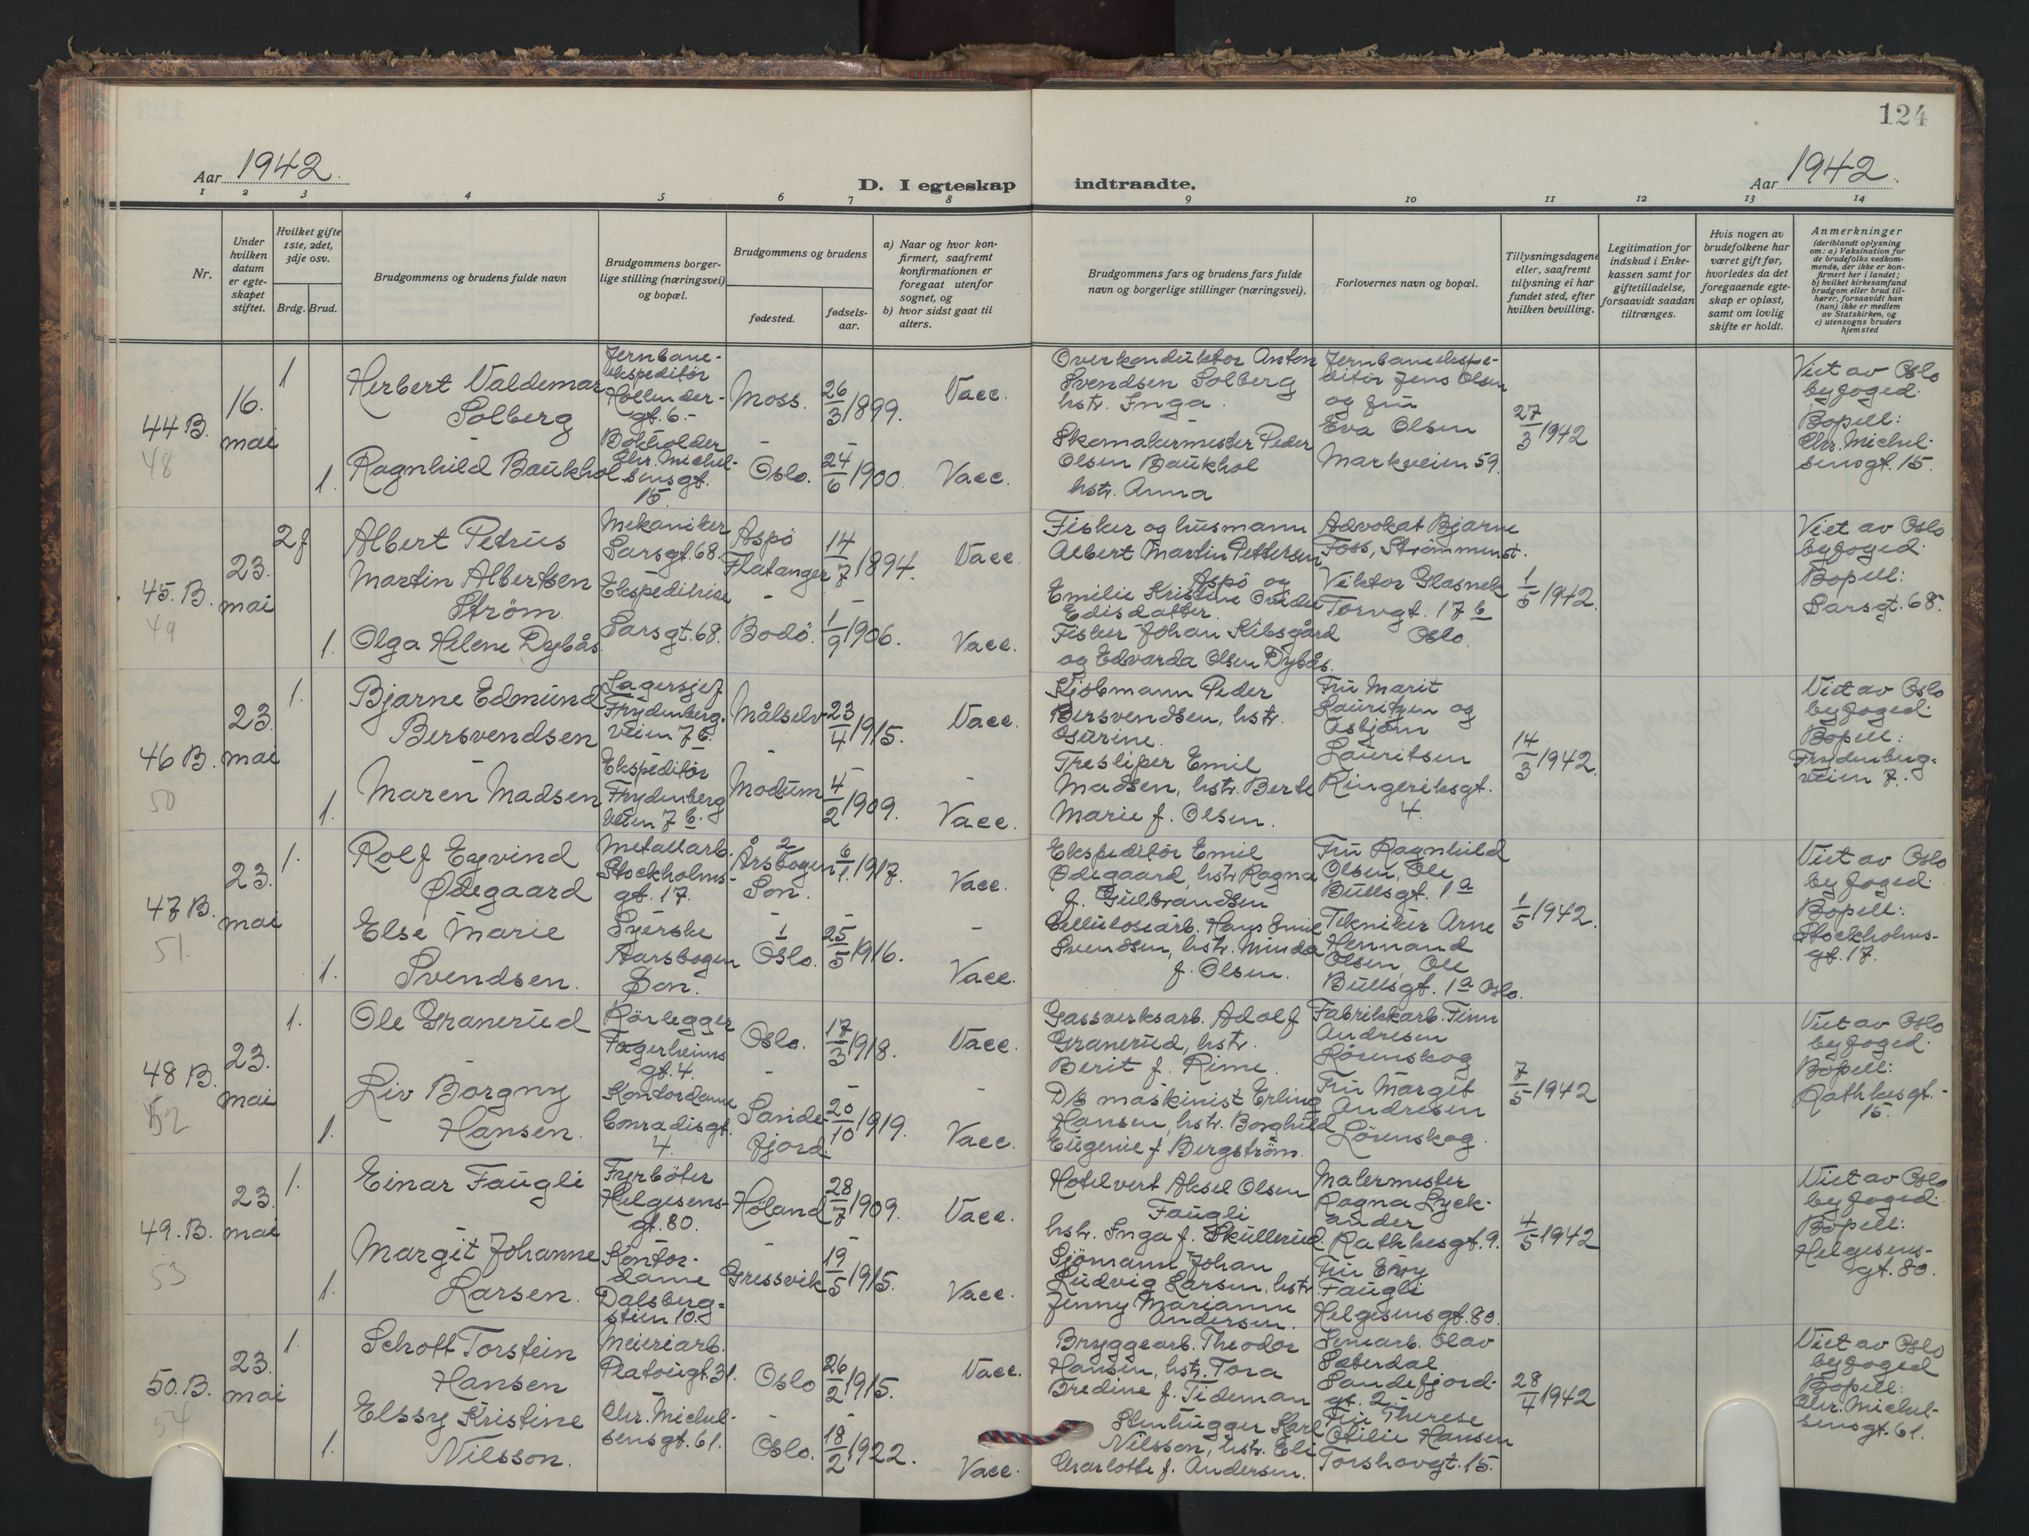 124
Aar 1942.
D. I egteskap indtraadte.
Aar 1942.
1 2 3 4 5 6 7 8 9 10 11 12 13 14
Nr.
Under hvilken datum er egteskapet stiftet.
Hvilket gifte 1ste, 2det, 3dje osv.
Brdg. Brud.
Brudgommens og brudens fulde navn
Brudgommens borgerlige stilling (næringsvei) og bopæl.
Brudgommens og brudens
fødested.
fødselsaar.
a) Naar og hvor konfirmert, saafremt konfirmationen er foregaat utenfor sognet, og
b) hvor sidst gaat til alters.
Brudgommens fars og brudens fars fulde navn og borgerlige stillinger (næringsvei).
Forlovernes navn og bopæl.
Tillysningsdagene eller, saafremt tillysning ei har fundet sted, efter hvilken bevilling.
Legitimation for indskud i Enkekassen samt for giftetilladelse, forsaavidt saadan tiltrænges.
Hvis nogen av brudefolkene har været gift før, hvorledes da det foregaaende egteskap er opløst, samt om lovlig skifte er holdt.
Anmerkninger
(deriblandt oplysning om: a) Vaksination for de brudefolks vedkommende, der ikke er konfirmert her i landet; b) hvilket kirkesamfund brudgom eller brud tilhører, forsaavidt han (hun) ikke er medlem av Statskirken, og c) utensogns bruders hjemsted
44 B.
48
16. mai
1
Herbert Valdemar Solberg
Jernbaneekspeditör Hollendergt. 6.
Moss.
26/3 1899.
Vacc.
Overkonduktor Anton Svendsen Solberg hstr. Inga.
Jernbaneekspeditör Jens Olsen og fru Eva Olsen
Markveien 59.
27/3 1942
Viet av Oslo byfoged. Bopell: Chr. Michelsensgt. 15.
1.
Ragnhild Baukhol
Bokholder Chr. Michelsensgt. 15
Oslo.
24/6 1900.
Vacc.
Skomakermester Peder Olsen Baukhol hstr. Anna
45. B.
49
23. mai
2 f
Albert Petrus Martin Albertsen Ström.
Mekaniker Sarsgt. 68.
Aspö Flatanger
14/7 1894.
Vacc.
Fisker og husmann Albert Martin Pettersen Aspö og Emilie Kristine Edisdatter.
Advokat Bjarne Foss, Strömmenst.
Viktor Glasnek Torvgt. 17 b Oslo
1/5 1942.
Viet av Oslo byfoged. Bopell: Sarsgt. 68.
1.
Olga Helene Dybås.
Ekspeditrise Sarsgt. 68.
Bodö.
1/9 1906.
Vacc.
Fisker Johan Kibsgård og Edvarda Olsen Dybås.
46 B.
50
23. mai
1.
Bjarne Edmund Bersvendsen
Lagersjef Frydenbergveien 7 b.
Målselv
23/4 1915.
Vacc.
Kjöbmann Peder Bersvendsen, hstr. Osurine.
Fru Marit Lauritzen og Asbjörn Lauritsen
Ringeriksgt. 4.
14/3 1942.
Viet av Oslo byfoged. Bopell: Frydenbergveien 7.
1.
Maren Madsen
Ekspeditör Frydenbergveien 7 b.
Modum
4/2 1909.
Vacc.
Tresliper Emil Madsen, hstr. Berte Marie f. Olsen.
47 B.
51.
23. mai
1.
Rolf Eyvind Ødegaard
Metallarb. Stockholmsgt. 17.
2
Årsbogen Son.
6/1. 1917.
Vacc.
Ekspeditör Emil Ødegaard, hstr. Ragna f. Gulbrandsen
Fru Ragnhild Olsen, Ole Bullsgt. 1 a
Tekniker Arne Hennand Olsen, Ole Bullsgt. 1 a Oslo.
1/5 1942.
Viet av Oslo byfoged. Bopell: Stockholmsgt. 17.
1.
Else Marie Svendsen.
Syerske Aarsbogen Son.
1
Oslo.
25/5 1916.
Vacc.
Cellulosearb. Hans Emil Svendsen, hstr. Minda f. Olsen.
48 B.
52
23. mai
1.
Ole Granerud
Rörlegger Fagerheimsgt. 4.
Oslo.
17/3 1918.
Vacc.
Gassverksarb. Adolf Granerud, hstr. Berit f. Rime.
Fabrikkarb. Finn Andresen Lörenskog
Fru Margit Andresen Lörenskog.
7/5 1942
Viet av Oslo byfoged. Bopell: Rathkesgt. 15.
1.
Liv Borgny Hansen.
Kontordame Conradisgt. 4.
Sandefjord.
20/10 1919.
Vacc.
D/s maskinist Erling Hansen, hstr. Borghild Eugenie f. Bergström.
49. B.
53
23. mai
1.
Einar Faugli
Fyrböter Helgesensgt. 80.
Höland
28/7 1909.
Vacc.
Hotelvert Aksel Olsen Faugli hstr. Inga f. Skullerud.
Malermester Ragna Lyckander Rathkesgt. 9.
Fru Envy Faugli Helgesensgt. 80.
4/5 1942
Viet av Oslo byfoged. Bopell: Helgesensgt. 80.
1.
Margit Johanne Larsen.
Kontordame Dalsbergstien 10.
Gressvik
19/5 1915.
Vacc.
Sjömann Johan Ludvig Larsen, hstr. Jenny Marianne Andersen.
50. B.
54
23. mai
1.
Schott Torstein Hansen
Meieriarb. Platougt. 31.
Oslo
26/2 1915.
Vacc.
Bryggearb. Theodor Hansen, hstr. Tora Bredine f. Tideman
Olav Sæterdal Sandefjordgt. 2.
Fru Therese Otilie Hansen Torshovgt. 15.
28/4 1942
Viet av Oslo byfoged Bopell: Chr. Michelsensgt. 61.
1.
Elssy Kristine Nilsson.
Chr. Michelsensgt. 61.
Oslo.
18/2 1922.
Vacc.
Stenhugger Karl Nilsson, hstr. Eli Charlotte f. Andersen.